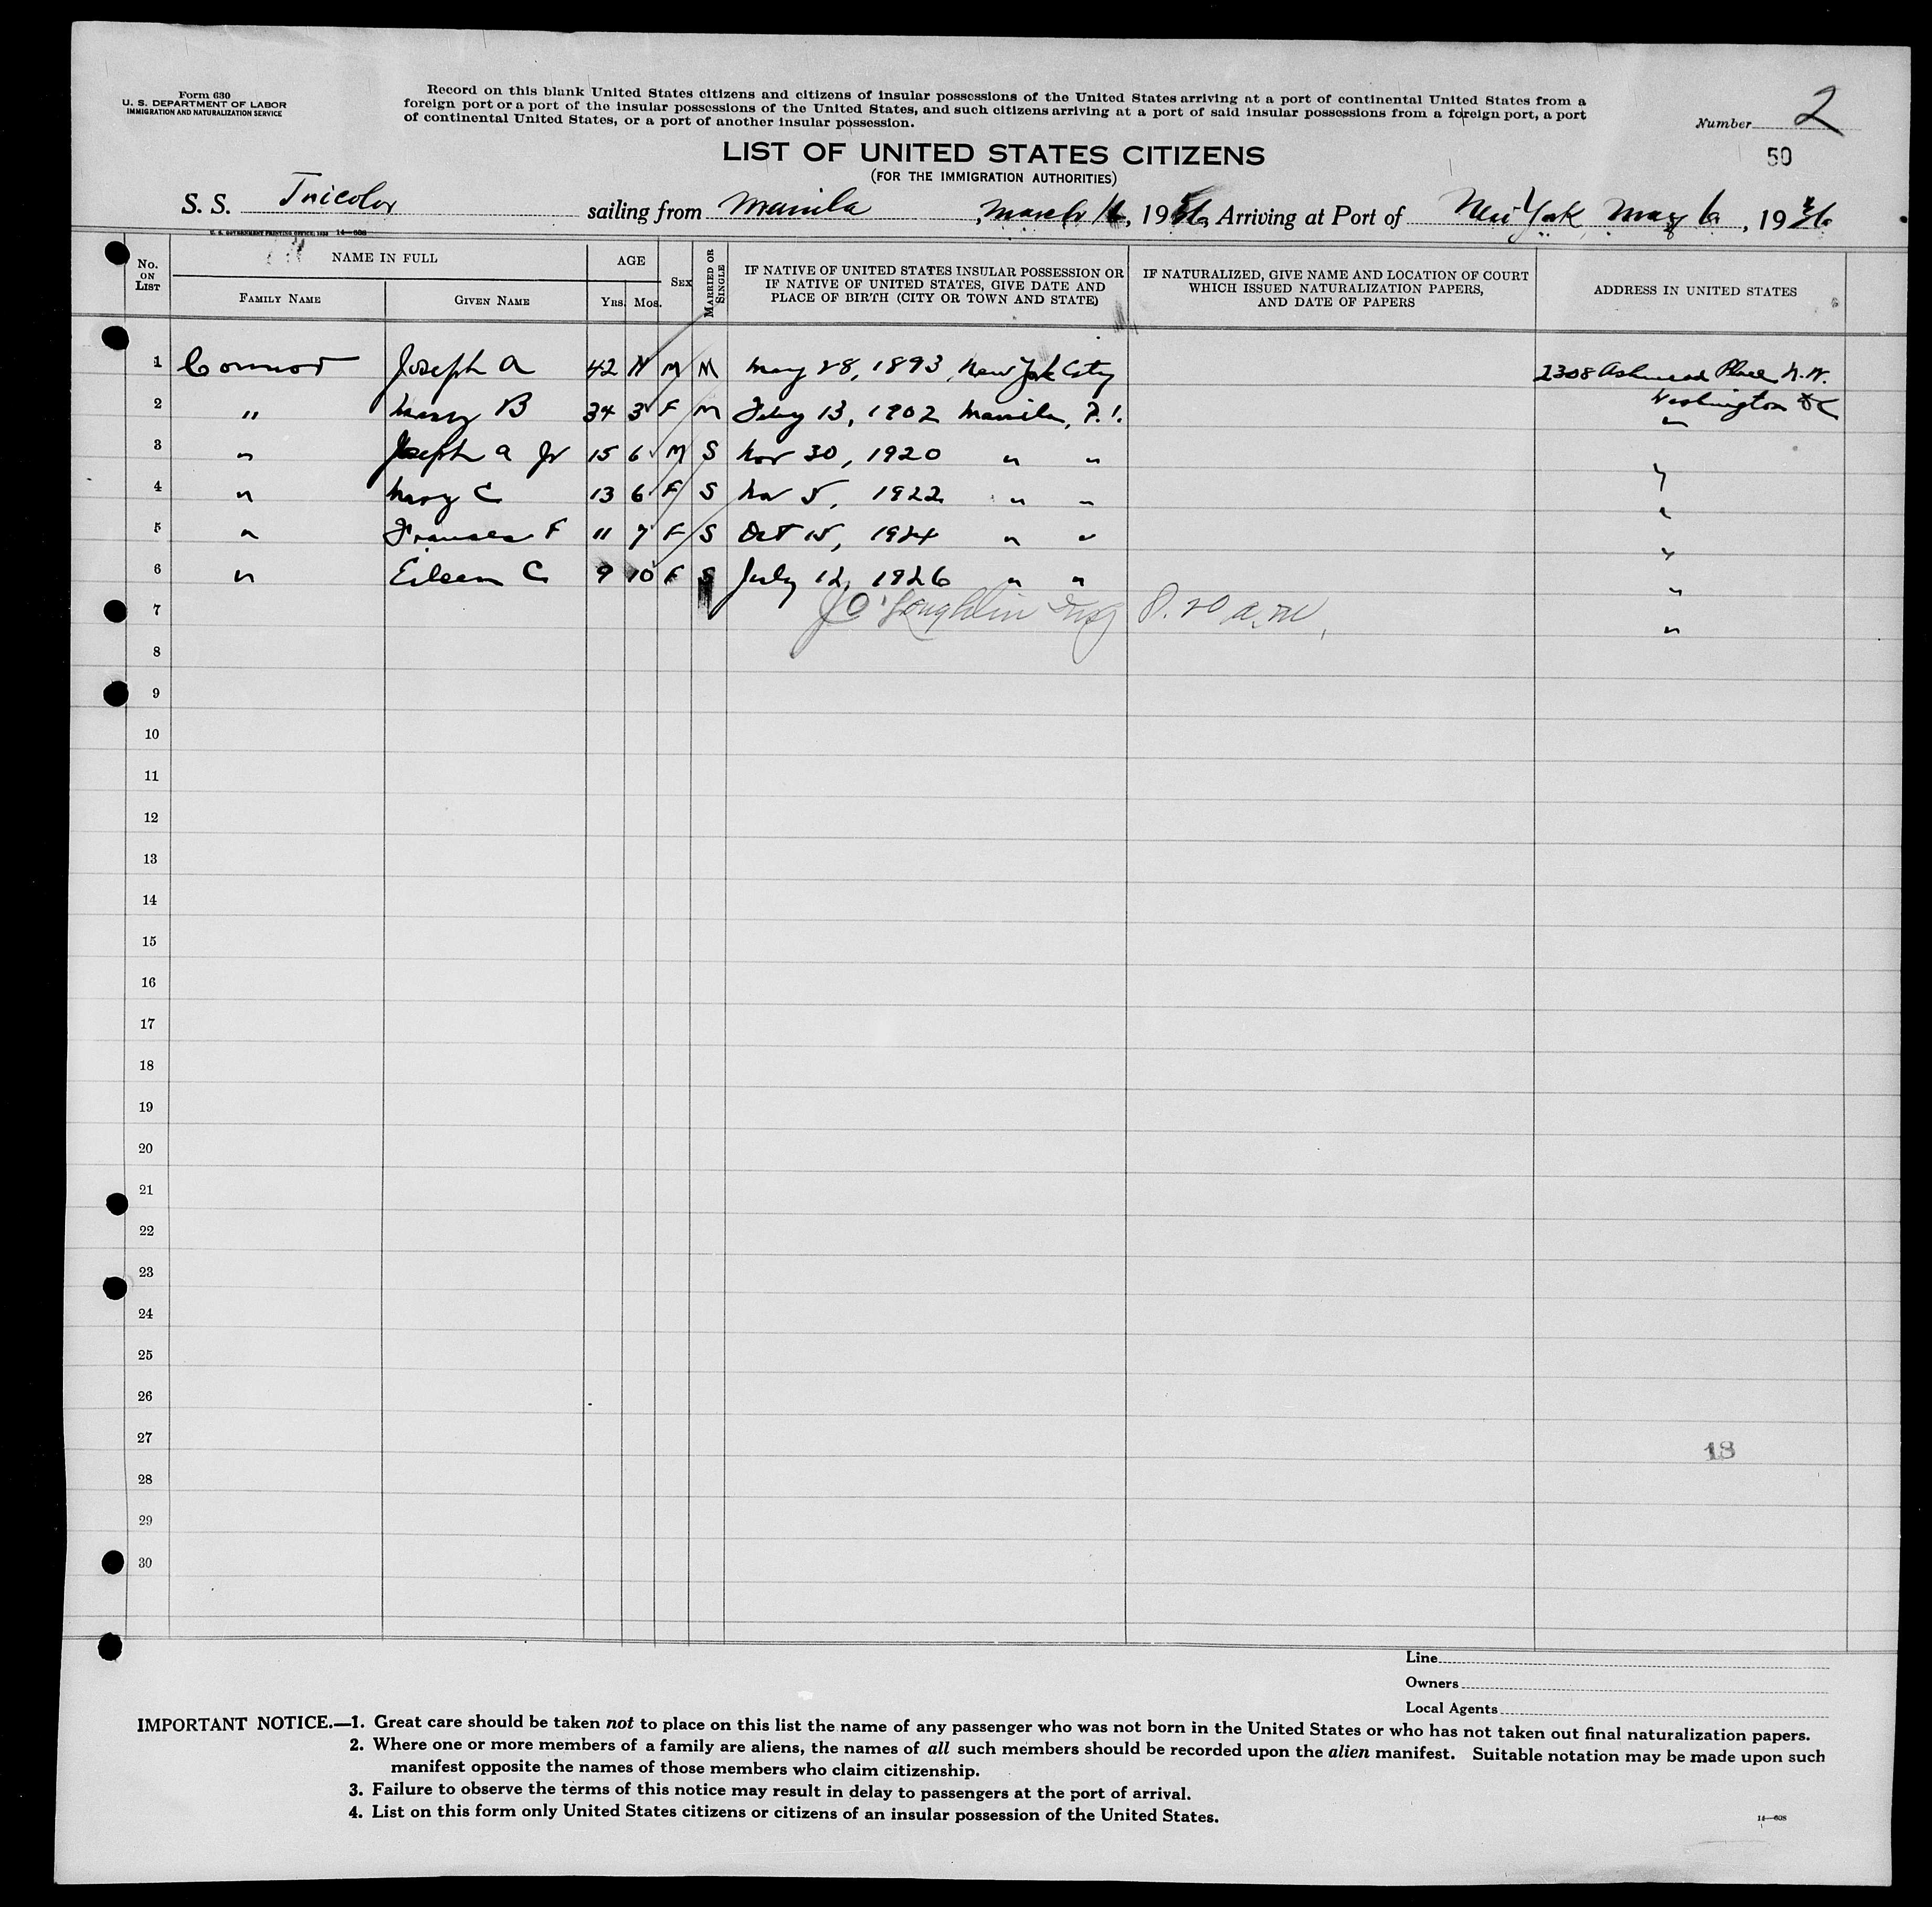 Form 630
U. S. DEPARTMENT OF LABOR
IMMIGRATION AND NATURALIZATION SERVICE
Record on this blank United States citizens and citizens of insular possessions of the United States arriving at a port of continental United States from a
foreign port or a port of the insular possessions of the United States, and such citizens arriving at a port of said insular possessions from a foreign port, a port
of continental United States, or a port of another insular possession.
Number 2
50
LIST OF UNITED STATES CITIZENS
(FOR THE IMMIGRATION AUTHORITIES)
S. S. Tricolor sailing from Manila, March 16, 1936, Arriving at Port of New York, May 6, 1936
U. S. GOVERNMENT PRINTING OFFICE: 1933 14—608
No. ON LIST
NAME IN FULL
FAMILY NAME
GIVEN NAME
AGE
YRS. MOS.
SEX
MARRIED OR SINGLE
IF NATIVE OF UNITED STATES INSULAR POSSESSION OR
IF NATIVE OF UNITED STATES, GIVE DATE AND
PLACE OF BIRTH (CITY OR TOWN AND STATE)
IF NATURALIZED, GIVE NAME AND LOCATION OF COURT
WHICH ISSUED NATURALIZATION PAPERS,
AND DATE OF PAPERS
ADDRESS IN UNITED STATES
1 Connor Joseph A 42 11 M M May 28, 1893, New York City 2308 Ashmead Place N.W.
Washington DC
2 " Mary B 34 3 F M Feby 13, 1902 Manila, P.I. "
3 " Joseph A Jr 15 6 M S Nov 30, 1920 " " "
4 " Mary C 13 6 F S Nov 5, 1922 " " "
5 " Frances F 11 7 F S Oct 15, 1924 " " "
6 " Eileen C 9 10 F S July 12, 1926 " " "
7 J O'Loughlin Insp 8.20 a.m. "
8
9
10
11
12
13
14
15
16
17
18
19
20
21
22
23
24
25
26
27 18
28
29
30
Line
Owners
Local Agents
IMPORTANT NOTICE.—1. Great care should be taken not to place on this list the name of any passenger who was not born in the United States or who has not taken out final naturalization papers.
2. Where one or more members of a family are aliens, the names of all such members should be recorded upon the alien manifest. Suitable notation may be made upon such
manifest opposite the names of those members who claim citizenship.
3. Failure to observe the terms of this notice may result in delay to passengers at the port of arrival.
4. List on this form only United States citizens or citizens of an insular possession of the United States.
14—608